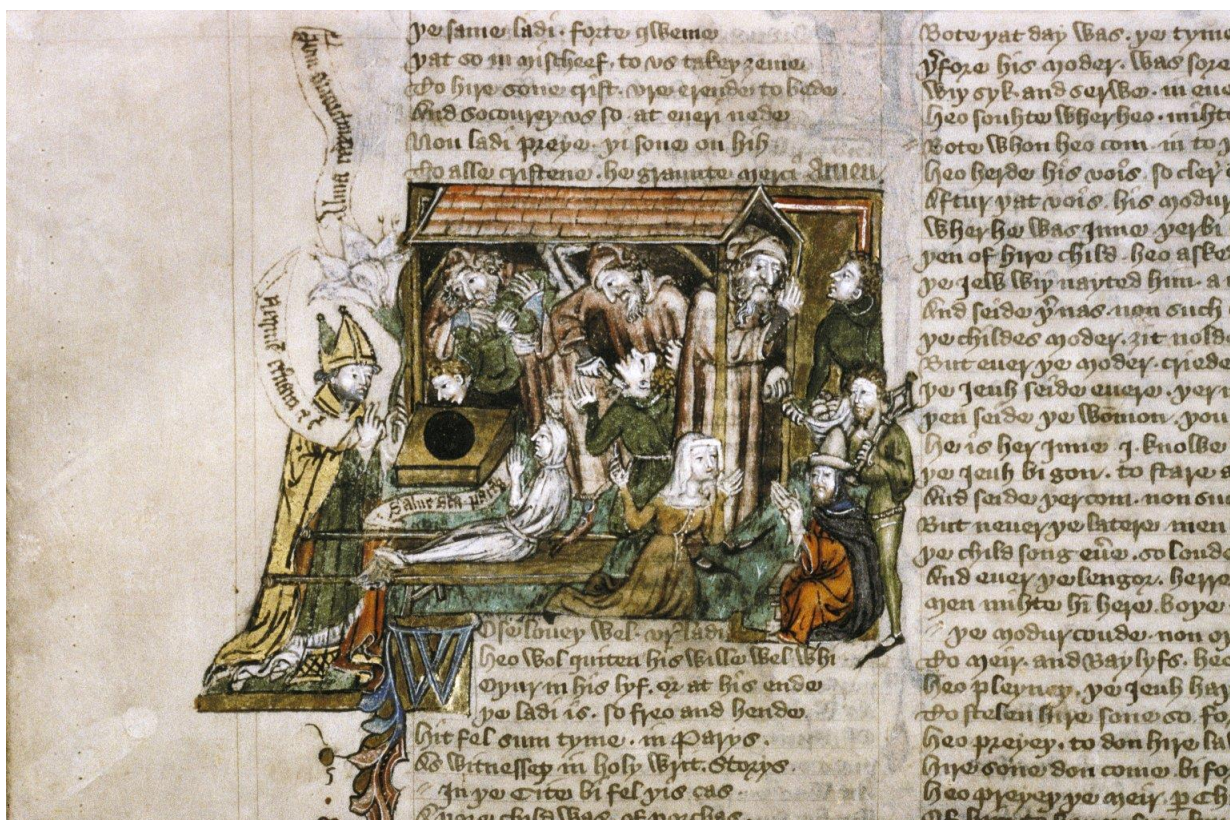 þe same ladi · forte qweme
þat so in mischeef · to vs takeþ ȝeme
To hire sone crist · vre erender to bede
And socoureþ vs so · at eueri nede
Nou ladi preye · þi sone on hih
To alle cristene · he graunte merci Amen
Salue Sca parēs
Hose loueþ wel · vr ladi
Heo wol quiten his wille wel whi
Oþur in his lyf · or at his ende
þe ladi is · so freo and hende
Hit fel sum tyme · in Parys ·
As witnesseþ in holy writ · Storys ·
In þe Cite bi fel þis cas ·
A pore child was · of porchas ·
Bote þat day was · þe tyme
þ'fore his moder · was sore
Wiþ syk · and serwe · in eue
Heo souhte wher heo · miht
Bote whon heo com · in to
Heo herde his vois · so cler
Aftur þat vois · his modur
Wher he was Inne þerbi
þen of hire child · heo aske
þe Jew wiþ nayted him · a
And seide þ' nas · non such
þe childes moder · ȝit nolde
But euer þe moder · criede
þe Jeuh seide euere · þer
þen seide þe wommon · þou
He is her Inne · I · knowe
þe Jeuh bi gon · to stare
And seide þer com · non su
But neuer þe latere · men
þe child song eūe · so loud
And euer þe lengor · herr
Men mihte hī here · boþe
þe modur coude · non o
To meir · and Baylyfs · he
Heo pleyneþ · þe Jeuh ha
To stelen hire sone so · f
Heo preyeþ · to don hire la
Hire sone don come · bi fo
Heo preyeþ þe meir · ꝑ Ch